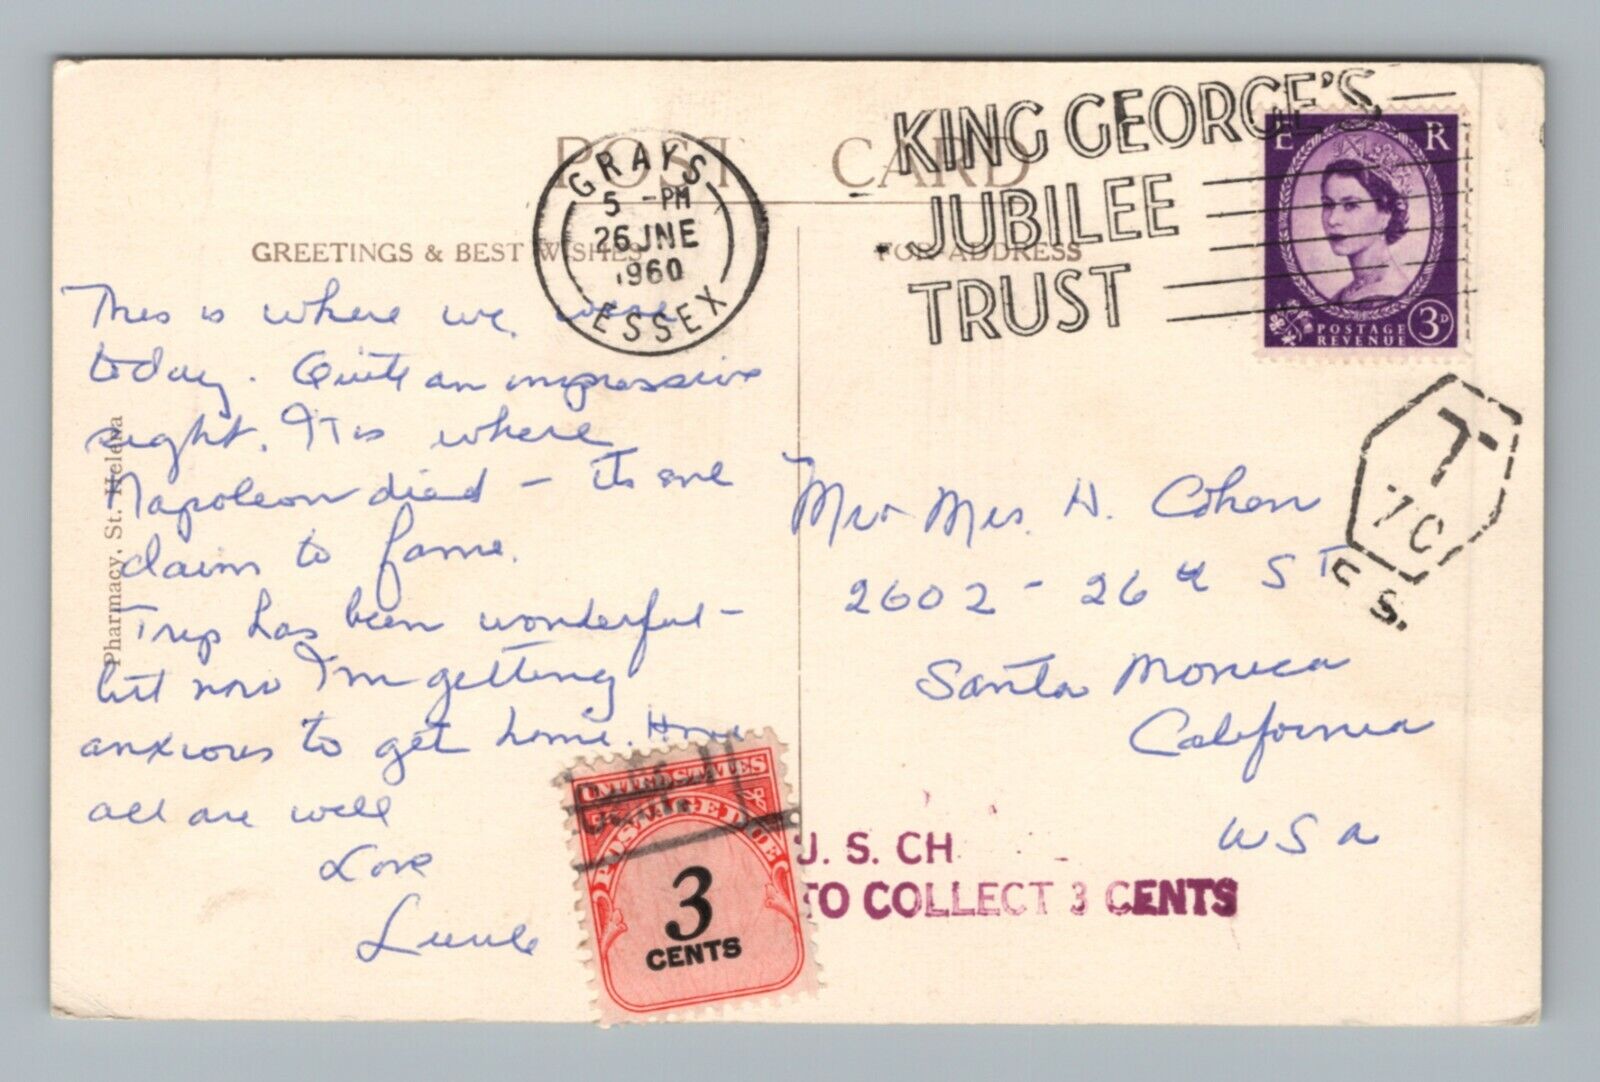 POST CARD
GRAYS
5 - PM
26 JNE
1960
ESSEX
KING GEORGE'S
JUBILEE
TRUST
E R
POSTAGE
REVENUE
3D
GREETINGS & BEST WISHES
FOR ADDRESS
This is where we were
today. Quite an impressive
sight. It is where
Napoleon died - its one
claim to fame.
Trip has been wonderful -
but now I'm getting
anxious to get home. Hope
all are well
Love
Pharmacy, St. Helena
T
7 C
C S.
Mr + Mrs. H. Cohen
2602 - 26th ST
Santa Monica
California
USA
UNITED STATES
POSTAGE DUE
3
CENTS
U. S. CH
TO COLLECT 3 CENTS